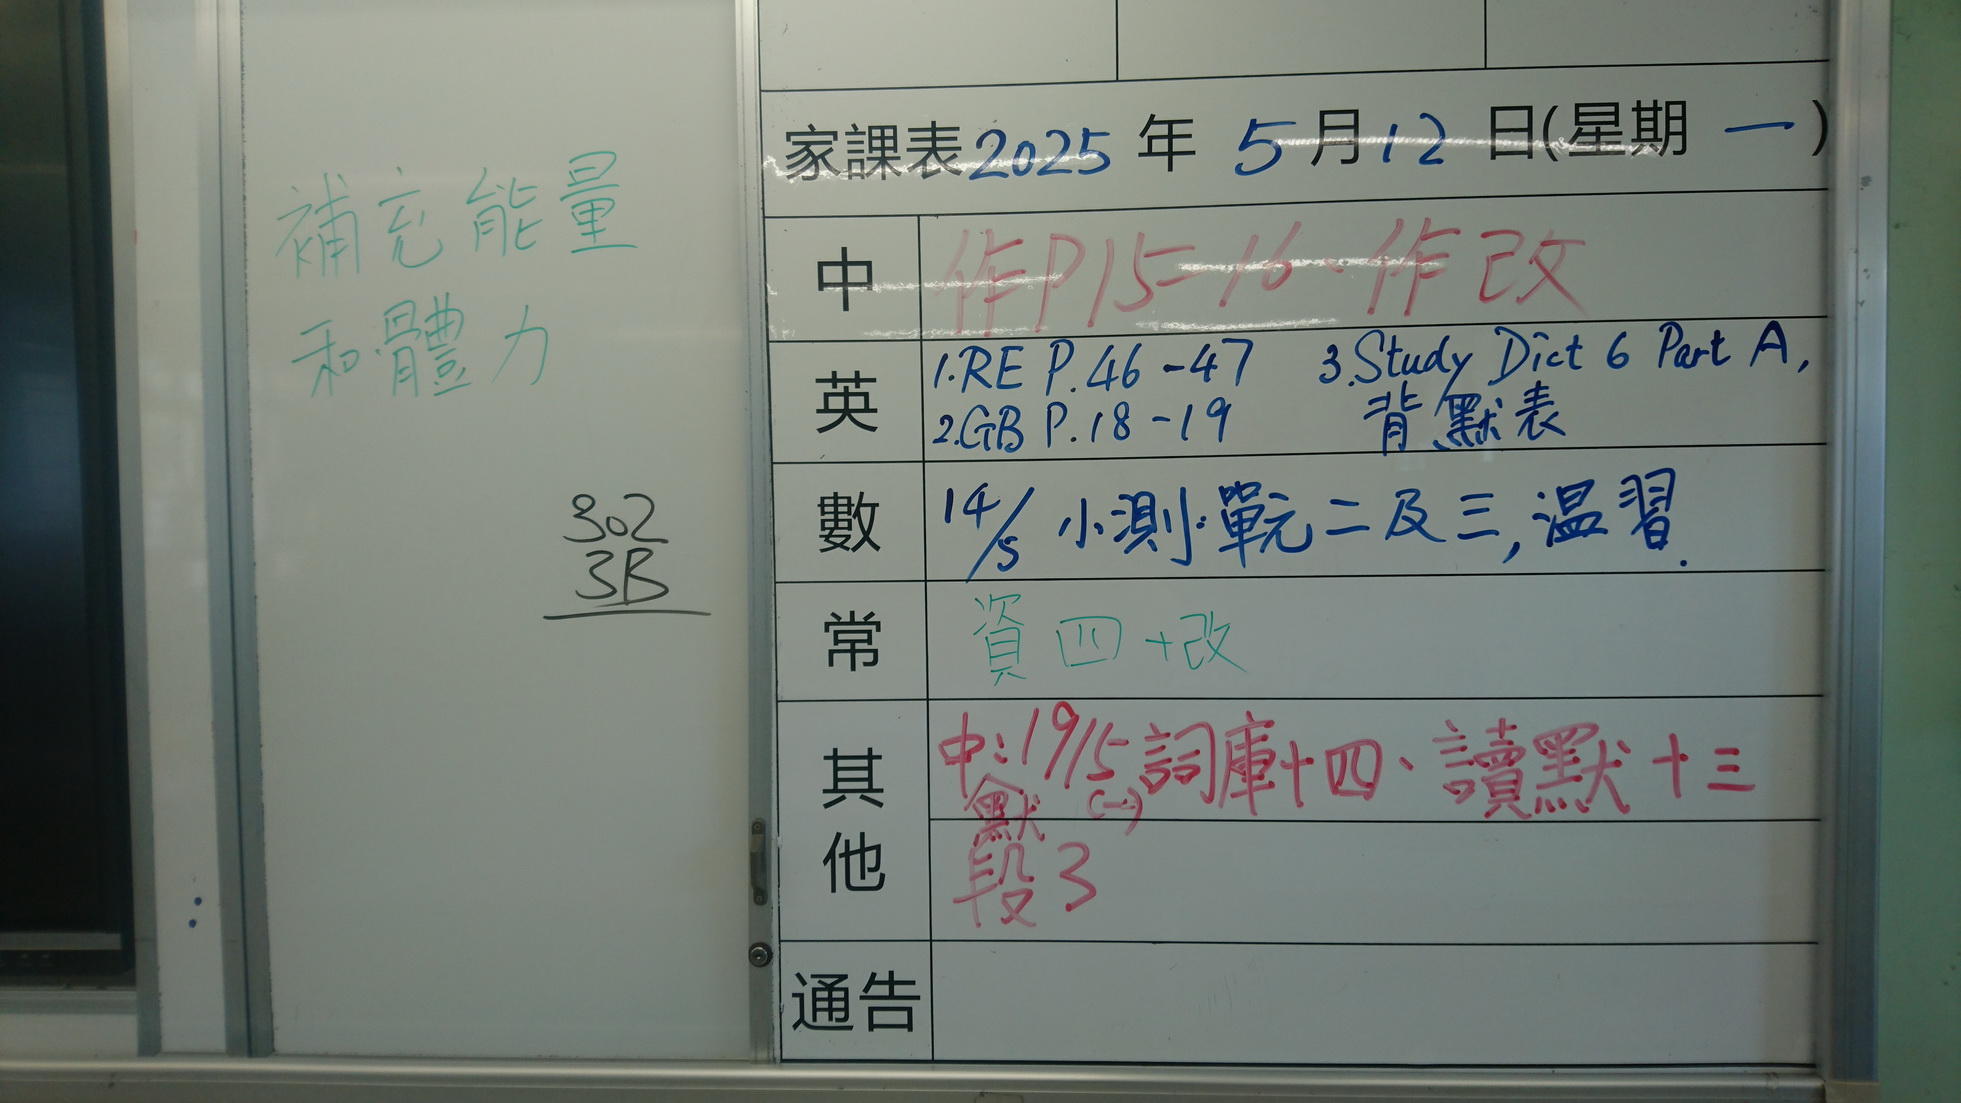 補充能量
和體力
302
3B
家課表2025年5月12日(星期一)
中 作P15-16、作改
英 1.RE P.46-47 3.Study Dict 6 Part A,
2.GB P.18-19 背默表
數 14/5 小測.單元二及三,温習.
常 資四+改
其他 中:19/5(一)詞庫十四、讀默十三
默
段3
通告